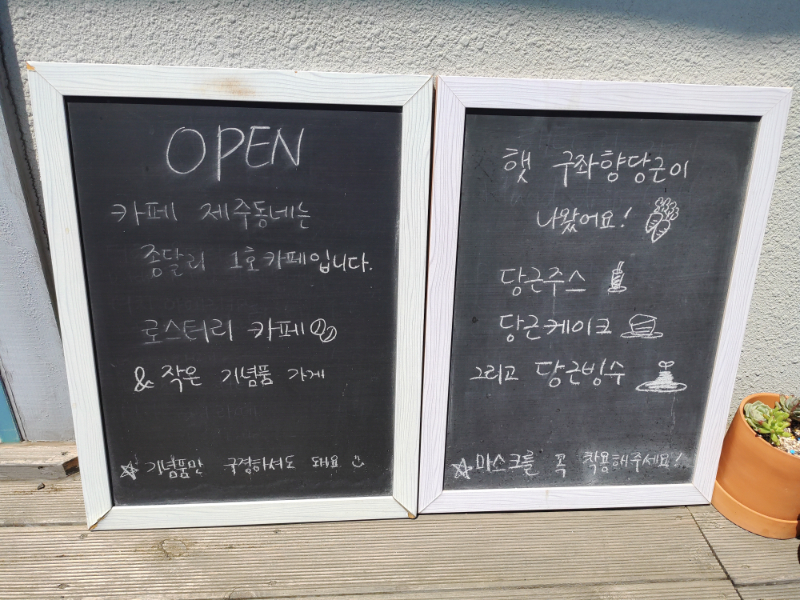 OPEN
카페 제주동네는
종달리 1호카페입니다.
로스터리 카페
& 작은 기념품 가게
☆ 기념품만 구경하셔도 돼요
햇 구좌향당근이
나왔어요!
당근주스
당근케이크
그리고 당근빙수
☆마스크를 꼭 착용해주세요!